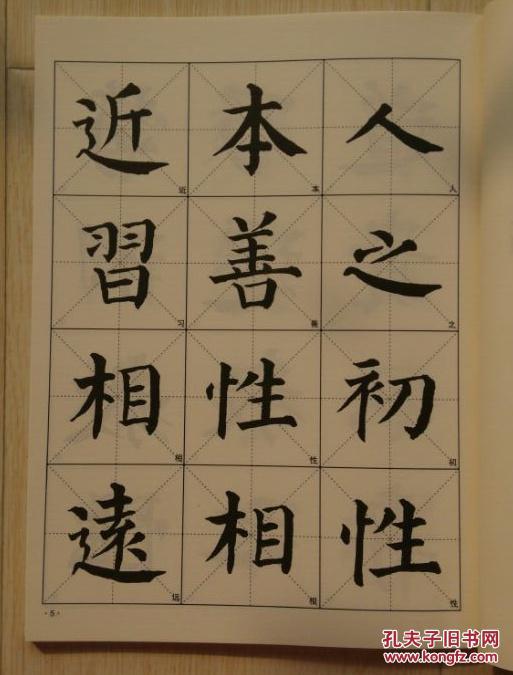 人之初性
本善性相
近習相遠
人
之
初
性
本
善
性
相
近
习
相
远
·5·
孔夫子旧书网
www.kongfz.com